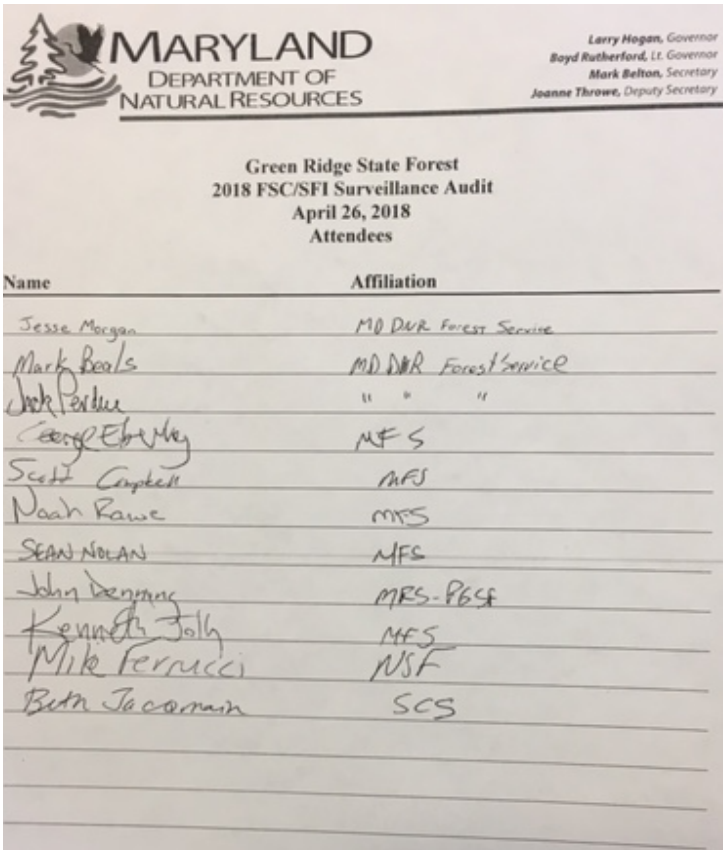 MARYLAND
DEPARTMENT OF
NATURAL RESOURCES
Larry Hogan, Governor
Boyd Rutherford, Lt. Governor
Mark Belton, Secretary
Joanne Throwe, Deputy Secretary
Green Ridge State Forest
2018 FSC/SFI Surveillance Audit
April 26, 2018
Attendees
Name Affiliation
Jesse Morgan MD DNR Forest Service
Mark Beals MD DNR Forest Service
Jack Perdue " " "
George MFS
Scott Campbell MFS
Noah Rawe MFS
SEAN NOLAN MFS
John Denning MRS-PGSF
Kenneth Jolly MFS
Mike Ferrucci NSF
Beth Jacqmain SCS